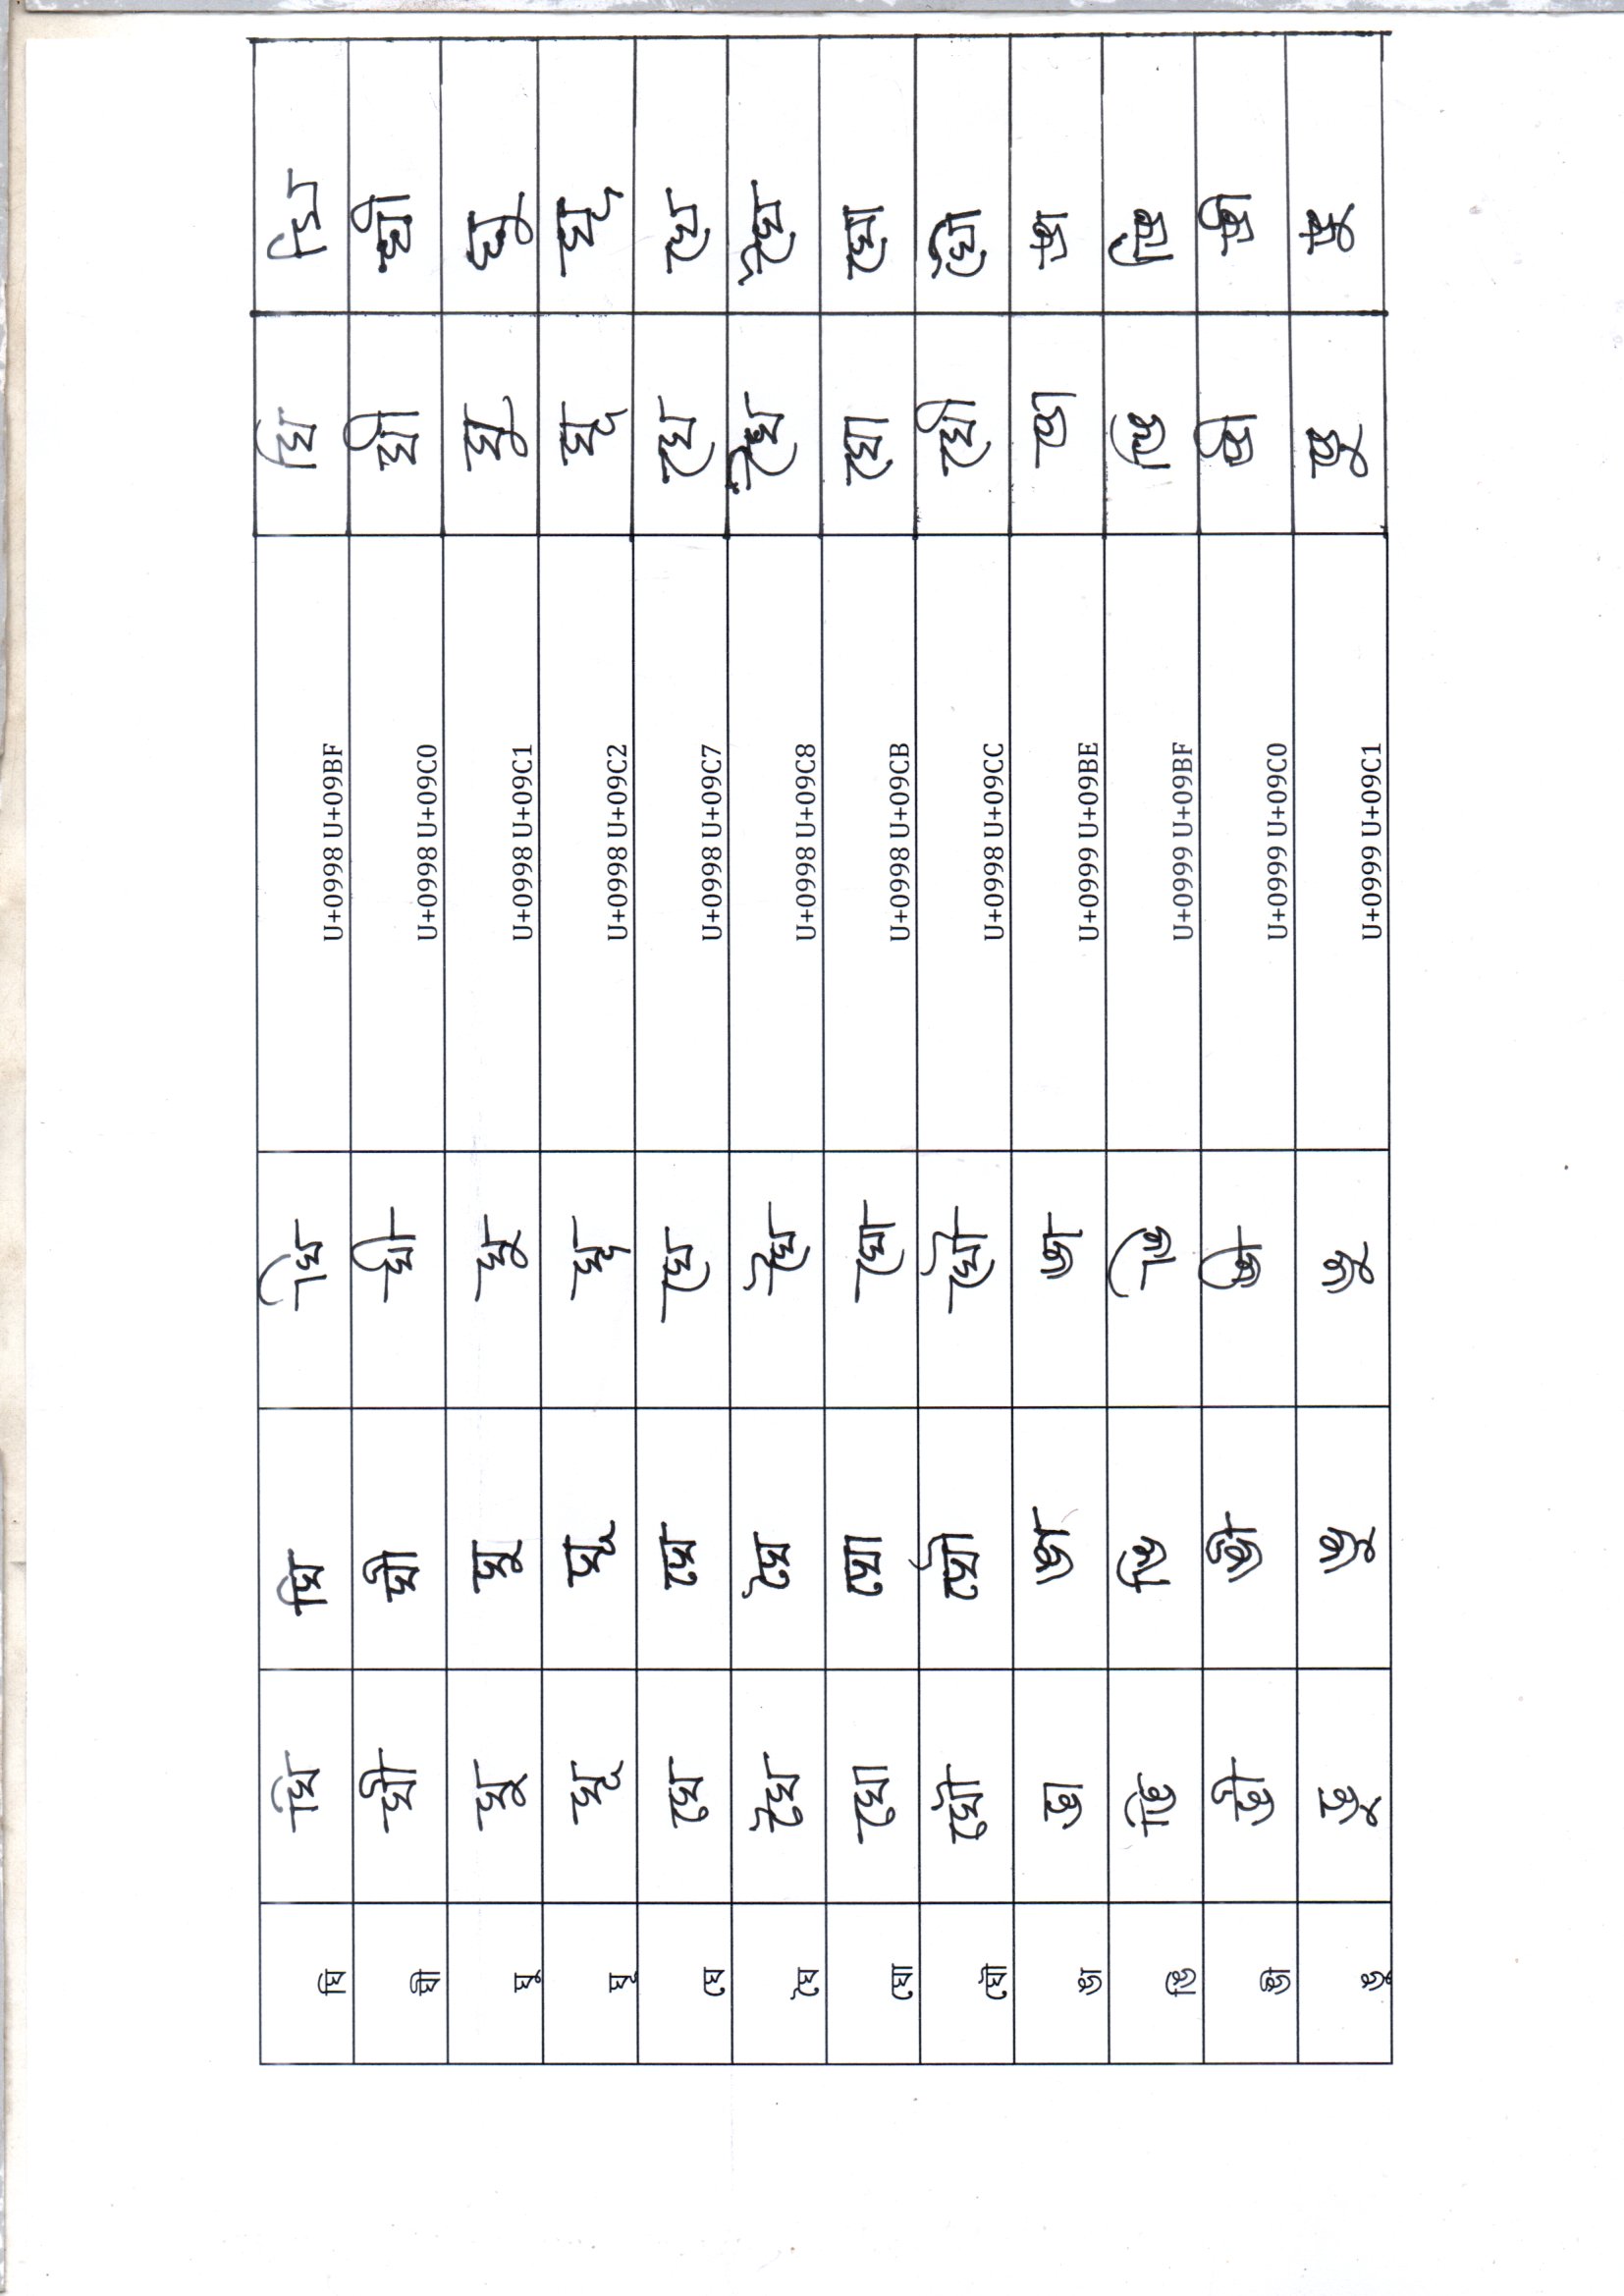 ঘি ঘি ঘি ঘি U+0998 U+09BF ঘি ঘি
ঘী ঘী ঘী ঘী U+0998 U+09C0 ঘী ঘী
ঘু ঘু ঘু ঘু U+0998 U+09C1 ঘু ঘু
ঘূ ঘূ ঘূ ঘূ U+0998 U+09C2 ঘূ ঘূ
ঘে ঘে ঘে ঘে U+0998 U+09C7 ঘে ঘে
ঘৈ ঘৈ ঘৈ ঘৈ U+0998 U+09C8 ঘৈ ঘৈ
ঘো ঘো ঘো ঘো U+0998 U+09CB ঘো ঘো
ঘৌ ঘৌ ঘৌ ঘৌ U+0998 U+09CC ঘৌ ঘৌ
ঙা ঙা ঙা ঙা U+0999 U+09BE ঙা ঙা
ঙি ঙি ঙি ঙি U+0999 U+09BF ঙি ঙি
ঙী ঙী ঙী ঙী U+0999 U+09C0 ঙী ঙী
ঙু ঙু ঙু ঙু U+0999 U+09C1 ঙু ঙু